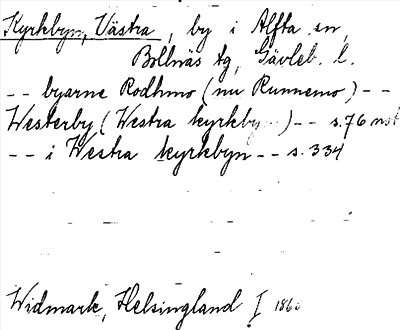 Kyrkbyn, Västra, by i Alfta sn,
Bollnäs tg, Gävleb. l.
-- byarne Rodhmo (nu Runnemo) --
Westerby (Westra kyrkby..) -- s. 76 not
-- i Westra kyrkbyn -- s. 334
Widmark, Helsingland I 186